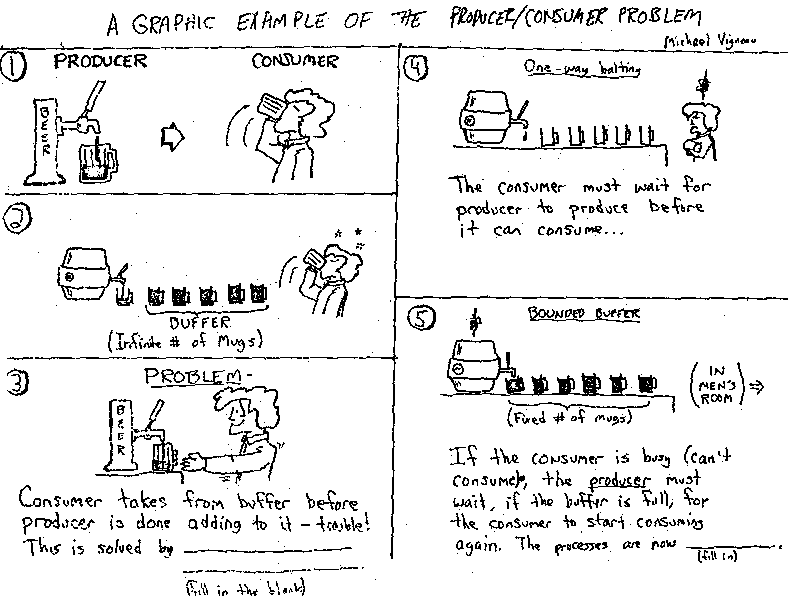 A GRAPHIC EXAMPLE OF THE PRODUCER/CONSUMER PROBLEM
Michael Vigneau
1
PRODUCER
CONSUMER
BEER
2
BUFFER
(Infinite # of Mugs)
3
PROBLEM-
BEER
Consumer takes from buffer before
producer is done adding to it - trouble!
This is solved by
(fill in the blank)
4
One-way halting
The consumer must wait for
producer to produce before
it can consume...
5
BOUNDED BUFFER
(Fixed # of mugs)
(IN
MEN'S
ROOM)
If the consumer is busy (can't
consume), the producer must
wait, if the buffer is full, for
the consumer to start consuming
again. The processes are now .
(fill in)